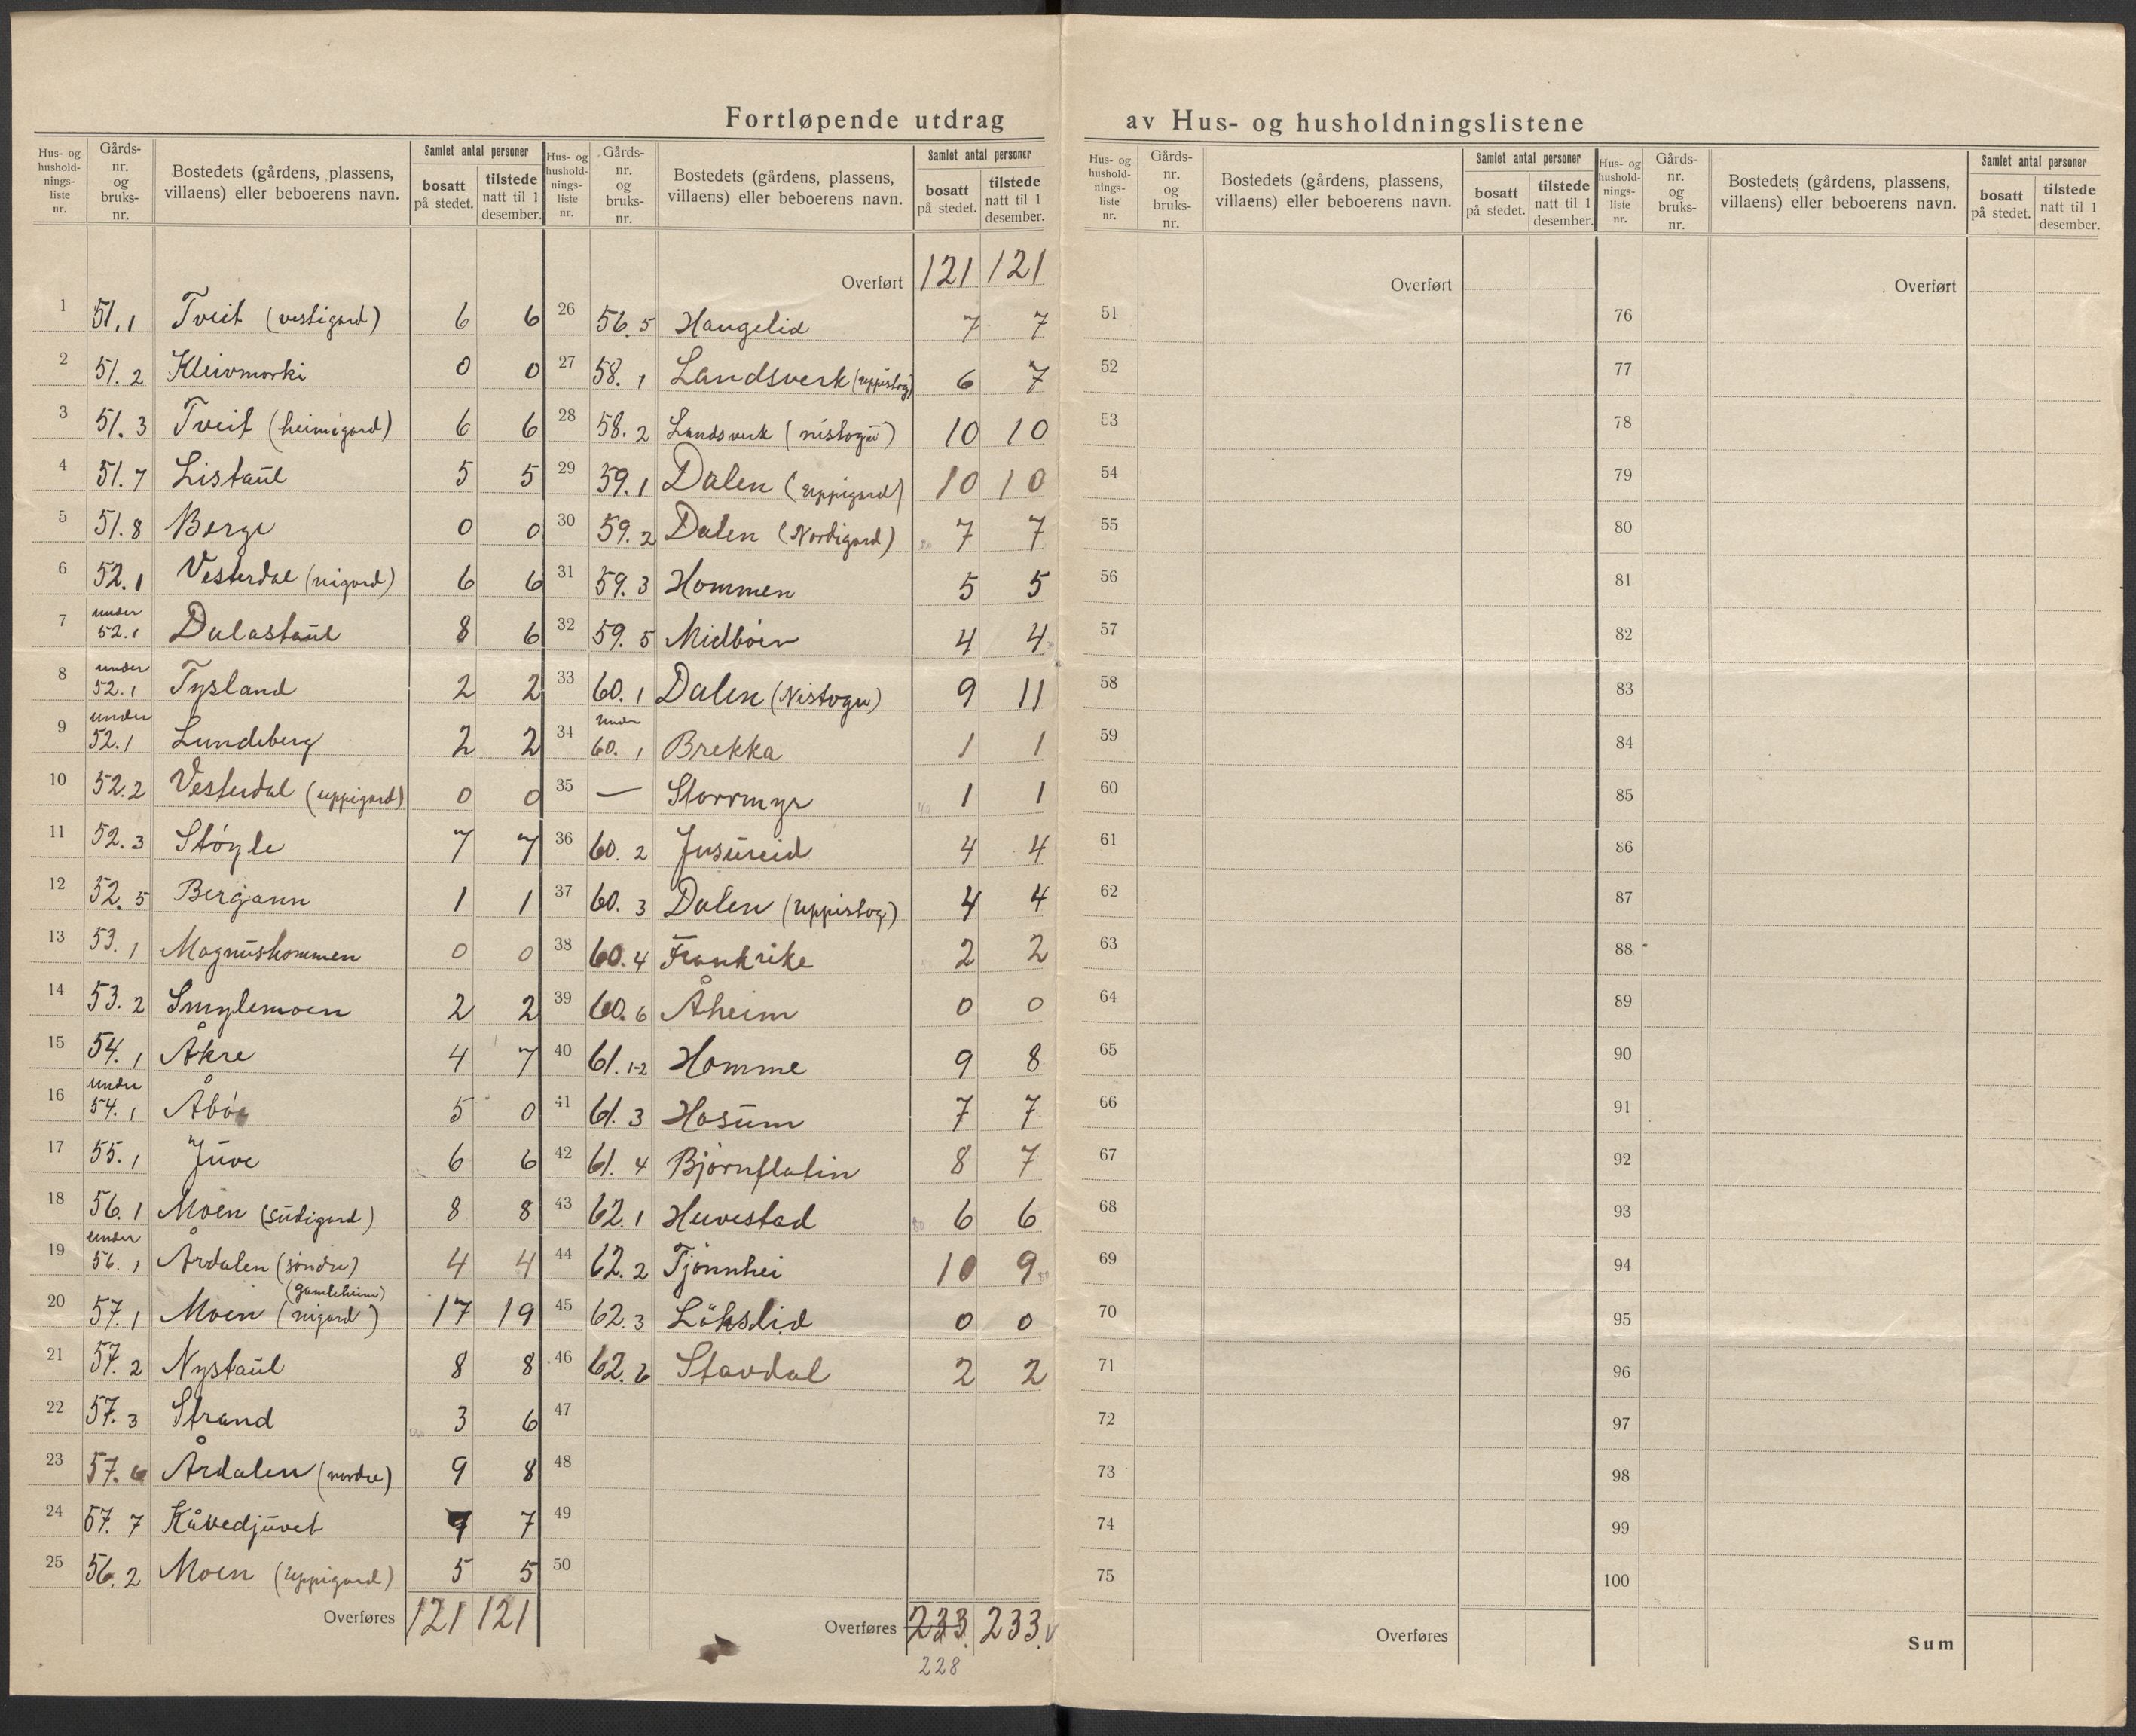 Fortløpende utdrag av Hus- og husholdningslistene
Hus- og hushold-nings-liste nr. Gårds-nr. og bruks-nr. Bostedets (gårdens, plassens, villaens) eller beboerens navn. Samlet antal personer bosatt på stedet. tilstede natt til 1 desember.
1 51.1 Tveit (vestigard) 6 6
2 51.2 Kleivmorki 0 0
3 51.3 Tveit (heimigard) 6 6
4 51.7 Listaul 5 5
5 51.8 Berge 0 0
6 52.1 Vesterdal (nigard) 6 6
7 under 52.1 Dalastaul 8 6
8 under 52.1 Tysland 2 2
9 under 52.1 Lundeberg 2 2
10 52.2 Vesterdal (uppigard) 0 0
11 52.3 Støyle 7 7
12 52.5 Bergann 1 1
13 53.1 Magnushommen 0 0
14 53.2 Smylemoen 2 2
15 54.1 Åkre 4 7
16 under 54.1 Åbø 5 0
17 55.1 Juve 6 6
18 56.1 Moen (sudigard) 8 8
19 under 56.1 Årdalen (søndre) 4 4
20 57.1 Moen (nigard) (gamleheim) 17 19
21 57.2 Nystaul 8 8
22 57.3 Strand 3 6
23 57.6 Årdalen (nordre) 9 8
24 57.7 Kåvedjuvet 7
25 56.2 Moen (uppigard) 5 5
Overføres 121 121
Hus- og hushold-nings-liste nr. Gårds-nr. og bruks-nr. Bostedets (gårdens, plassens, villaens) eller beboerens navn. Samlet antal personer bosatt på stedet. tilstede natt til 1 desember.
Overført 121 121
26 56.5 Haugelid 7 7
27 58.1 Landsverk (uppistog) 6 7
28 58.2 Landsverk (nistogu) 10 10
29 59.1 Dalen (uppigard) 10 10
30 59.2 Dalen (Nordigard) 7 7
31 59.3 Hommen 5 5
32 59.5 Midbøen 4 4
33 60.1 Dalen (Nistogu) 9 11
34 under 60.1 Brekka 1 1
35 — Storrmyr 1 1
36 60.2 Jusureid 4 4
37 60.3 Dalen (uppistog) 4 4
38 60.4 Frankrike 2 2
39 60.6 Åheim 0 0
40 61.1-2 Homme 9 8
41 61.3 Hosum 7 7
42 61.4 Bjørnflatin 8 7
43 62.1 Huvestad 6 6
44 62.2 Tjønnhei 10 9
45 62.3 Løkslid 0 0
46 62.6 Stavdal 2 2
47
48
49
50
Overføres 233 233
228
Hus- og hushold-nings-liste nr. Gårds-nr. og bruks-nr. Bostedets (gårdens, plassens, villaens) eller beboerens navn. Samlet antal personer bosatt på stedet. tilstede natt til 1 desember.
Overført
51
52
53
54
55
56
57
58
59
60
61
62
63
64
65
66
67
68
69
70
71
72
73
74
75
Overføres
Hus- og hushold-nings-liste nr. Gårds-nr. og bruks-nr. Bostedets (gårdens, plassens, villaens) eller beboerens navn. Samlet antal personer bosatt på stedet. tilstede natt til 1 desember.
Overført
76
77
78
79
80
81
82
83
84
85
86
87
88
89
90
91
92
93
94
95
96
97
98
99
100
Sum